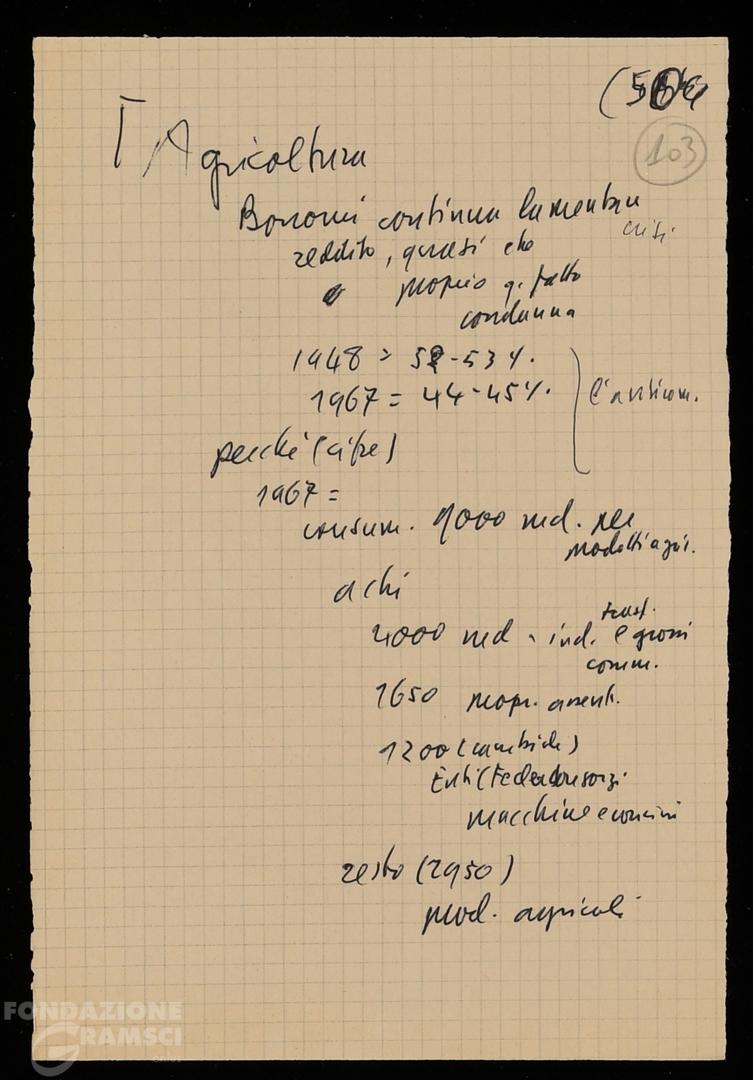 103
Agricoltura
Bonomi continua lamentare crisi
reddito, quasi che
proprio q. fatto
condanna
1948 = 52-53%.
1967 = 44-45%. l'anticom.
perché (cifre)
1967 =
consum. 9000 md. per
prodotti agri.
a chi
trust.
4000 md. ind. e grossi
comm.
1650 propr. assent.
1200 (cambiali)
Enti (Federconsorzi
macchine e concimi
resto (2950)
prod. agricoli
FONDAZIONE
GRAMSCI
onlus